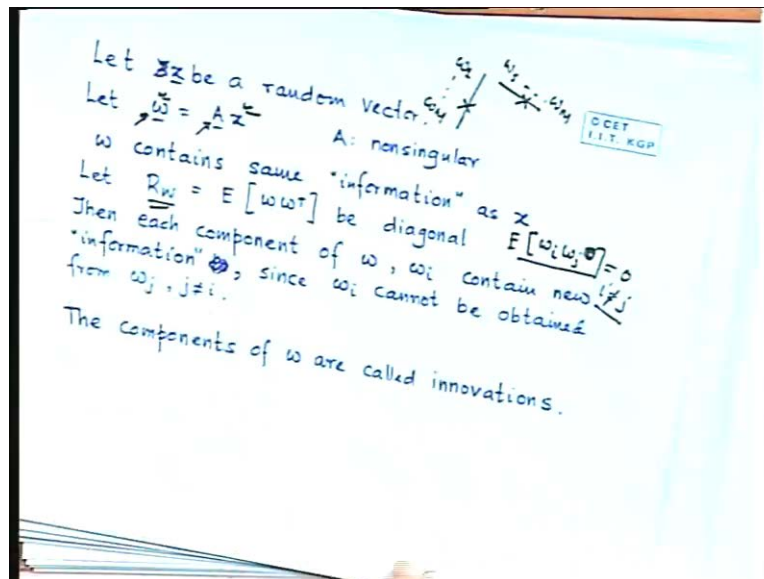 Let x be a random vector.
Let w = A x
A: nonsingular
w contains same "information" as x
Let Rw = E [ww^T] be diagonal E[wi wj]=0
i≠j
Then each component of w, wi contain new
"information", since wi cannot be obtained
from wj, j≠i.
The components of w are called innovations.
w1
w2
wM
wM
© CET
I.I.T. KGP